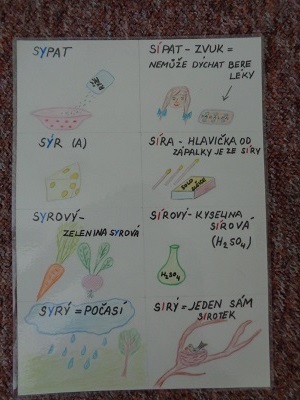 SYPAT
SÍPAT - ZVUK =
NEMŮŽE DÝCHAT BERE
LÉKY
SÝR (A)
SÍRA - HLAVIČKA OD
ZÁPALKY JE ZE SÍRY
SYROVÝ -
ZELENINA SYROVÁ
SÍROVÝ - KYSELINA
SÍROVÁ
(H₂SO₄)
H₂SO₄
SYRÝ = POČASÍ
SIRÝ = JEDEN SÁM
SIROTEK